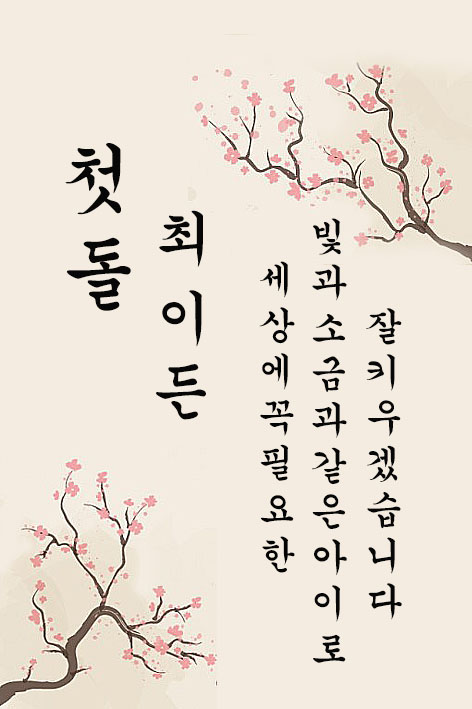 첫돌
최이든
세상에꼭필요한
빛과소금과같은아이로
잘키우겠습니다